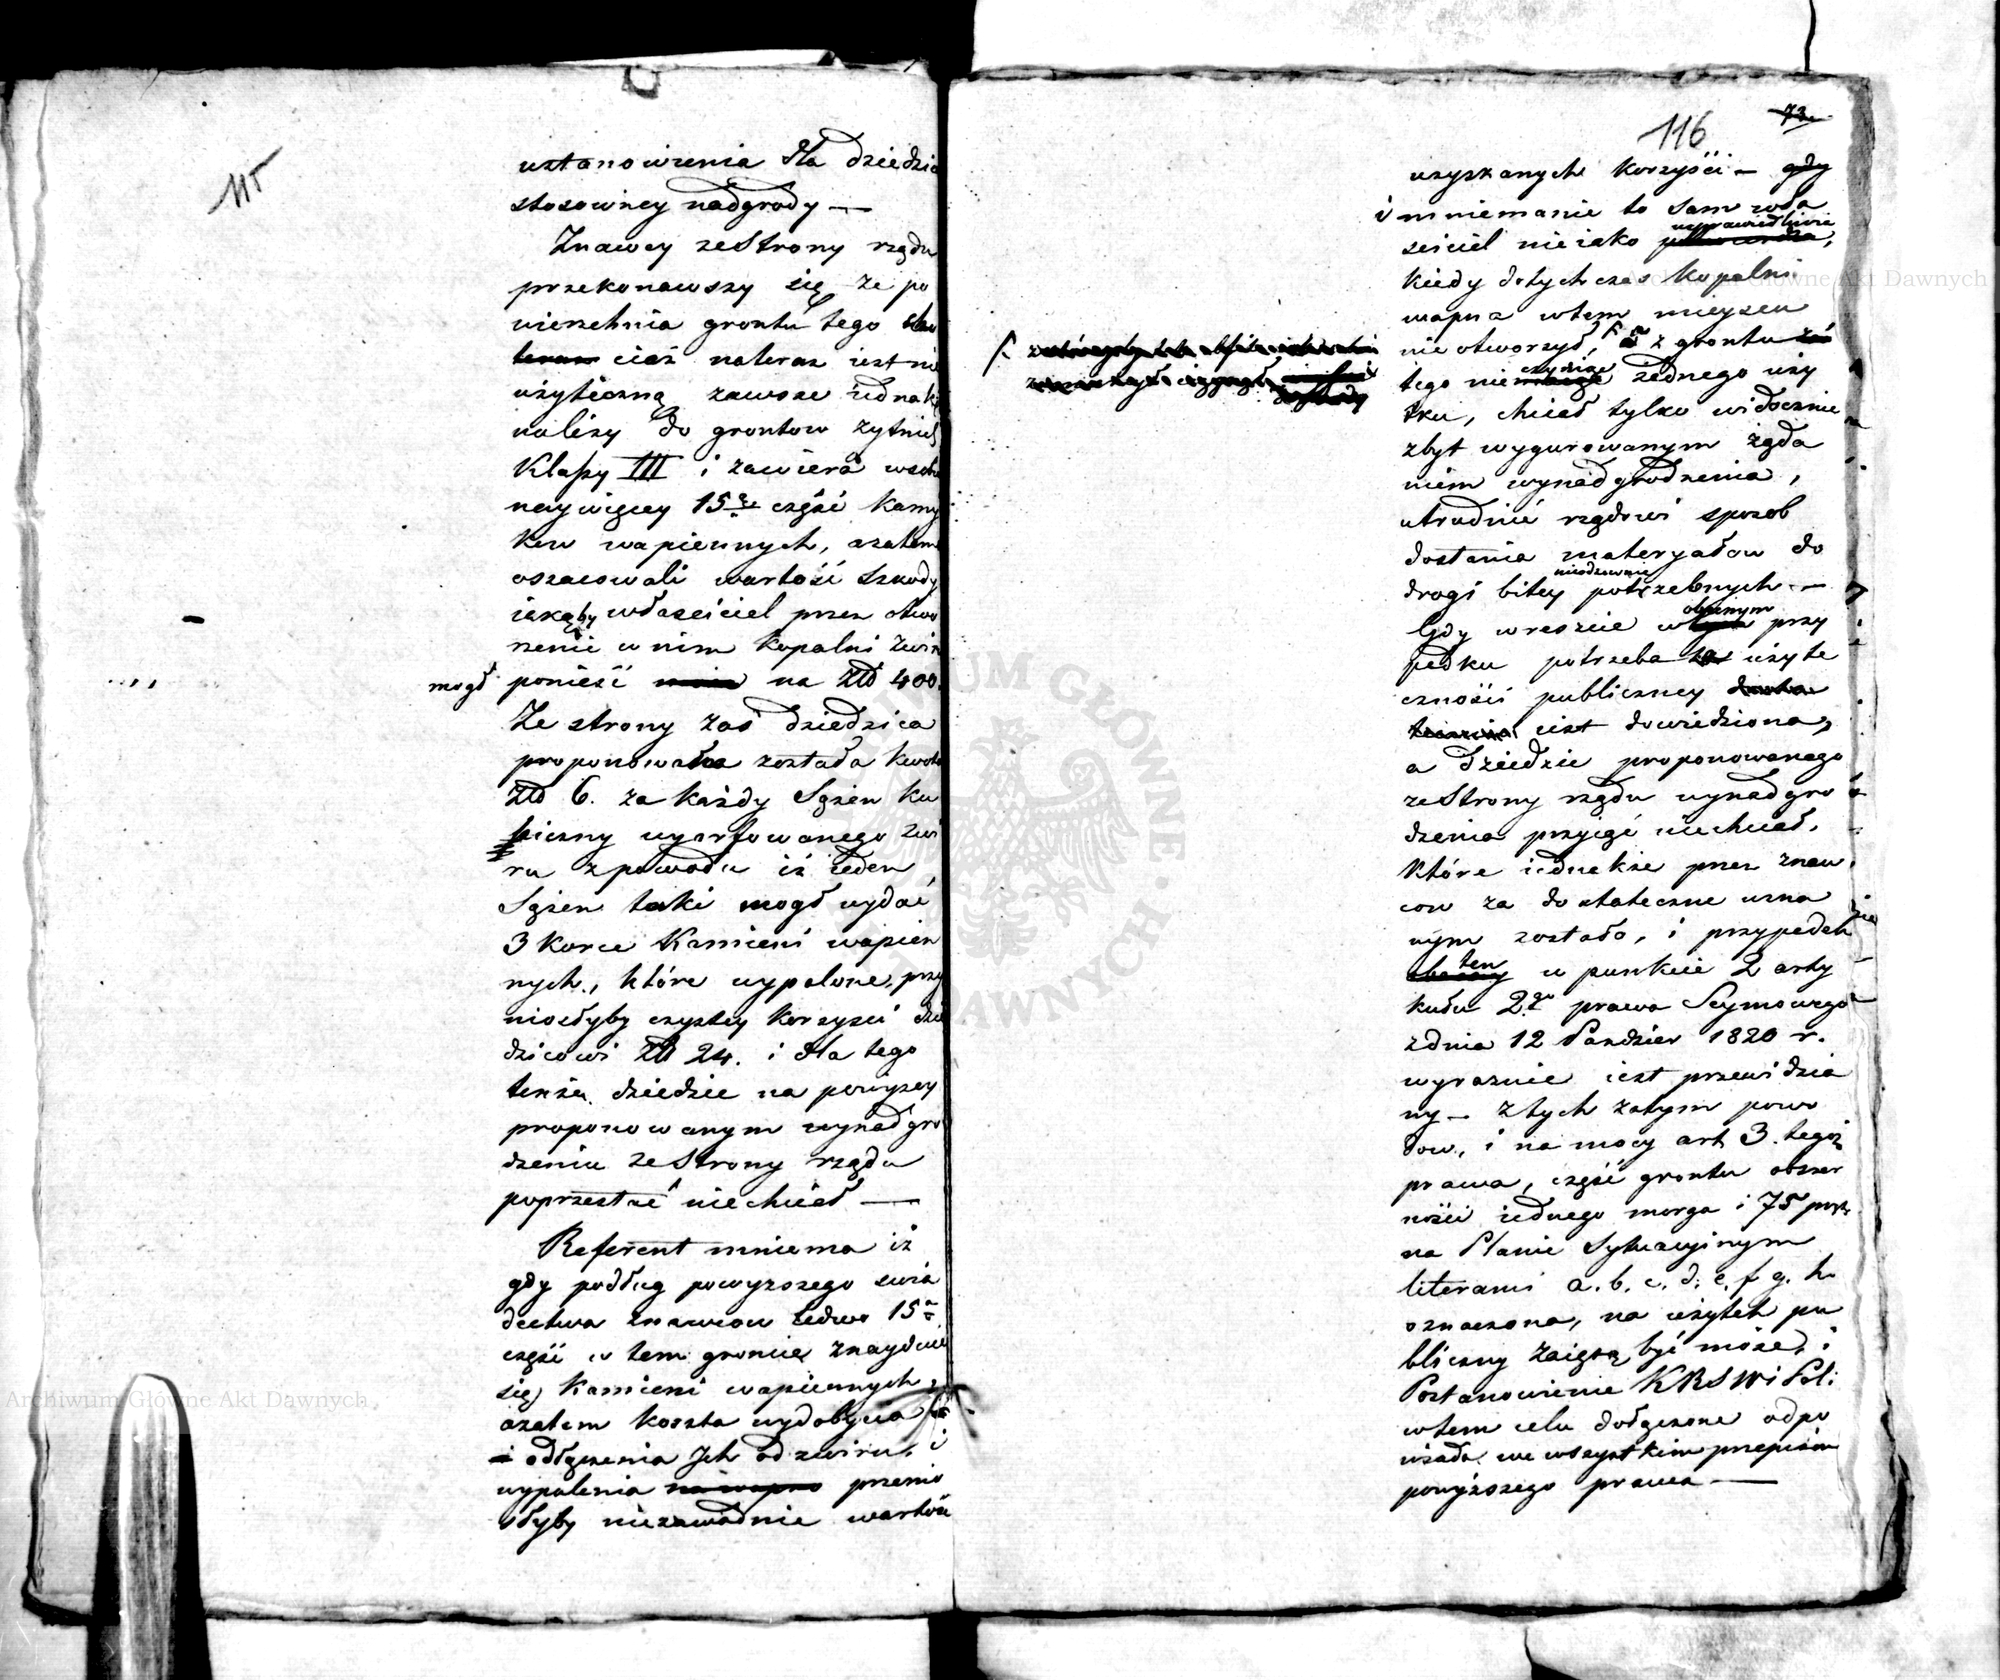 115
ustanowienia dla dziedzica
stosowney nadgrody —
Znawcy ze strony rządu
przekonawszy się że po
wierzchnia grontu tego
cież nateraz iest nie
użyteczną zawsze iednak
należy do grontow żytnich
Klassy III i zawiera w sobie
naywięcey 15tą część kamy
kow wapiennych, a zatem
oszacowali wartość szkody
iakąby właściciel przez otwo
rzenie w nim kopalni żwiru
mogł ponieść na Złp 400.
Ze strony zaś dziedzica
proponowana została kwota
Złp 6. za każdy Sążen ku
biczny wyarfowanego żwi
ru z powodu iż ieden
Sążen taki mogł wydać
3 korce Kamieni wapien
nych, które wypalone, przy
niosłyby czystey korzyści dzie
dzicowi Złp 24. i dla tego
tenże dziedzic na powyżey
proponowanym wynadgro
dzeniu ze strony rządu
poprzestać niechciał —
Referent mniema iż
gdy podług powyższego swia
dectwa znawcow ledwo 15a
część w tem groncie znayduie
się Kamieni wapiennych,
azatem koszta wydobycia
odłączenia Jch od zwiru, i
wypalenia na wapno przenio
słyby niezawodnie wartość
116
73
uzyskanych korzyści — gdy
i mniemanie to sam wła
ściciel nieiako usprawiedliwia,
kiedy dotychczas kopalni
wapna w tem mieyscu
nie otworzył, a z grontu
tego nie czynił żednego uży
tku, chciał tylko widocznie
zbyt wygurowanym żąda
niem wynadgrodzenia,
utrudnić rządowi sposob
dostania materyałow do
drogi bitey nieodzownie potrzebnych —
Gdy wreszcie w obecnym przy
padku potrzeba użyte
czności publiczney
iest dowiedziona,
a Dziedzic proponowanego
ze strony rządu wynadgro
dzenia przyjąć niechciał,
które iednakże przez znaw
cow za dostateczne uzna
nym zostało, i przypadek
ten w punkcie 2 arty
kułu 2go prawa Seymowego
z dnia 12 Pazdzier 1820 r.
wyraznie iest przewidzia
ny — Z tych zatym powo
dow, i na mocy art 3. tegoż
prawa, część grontu obszer
ności iednego morga i 75 pręt.
na Planie Sytuacyinym
literami a. b. c. d. e. f. g. h
oznaczona, na użytek pu
bliczny zaiętą być może, i
Postanowienie KRSW i Pol:
w tem celu dołączone odpo
wiada we wszystkim przepisom
powyższego prawa —